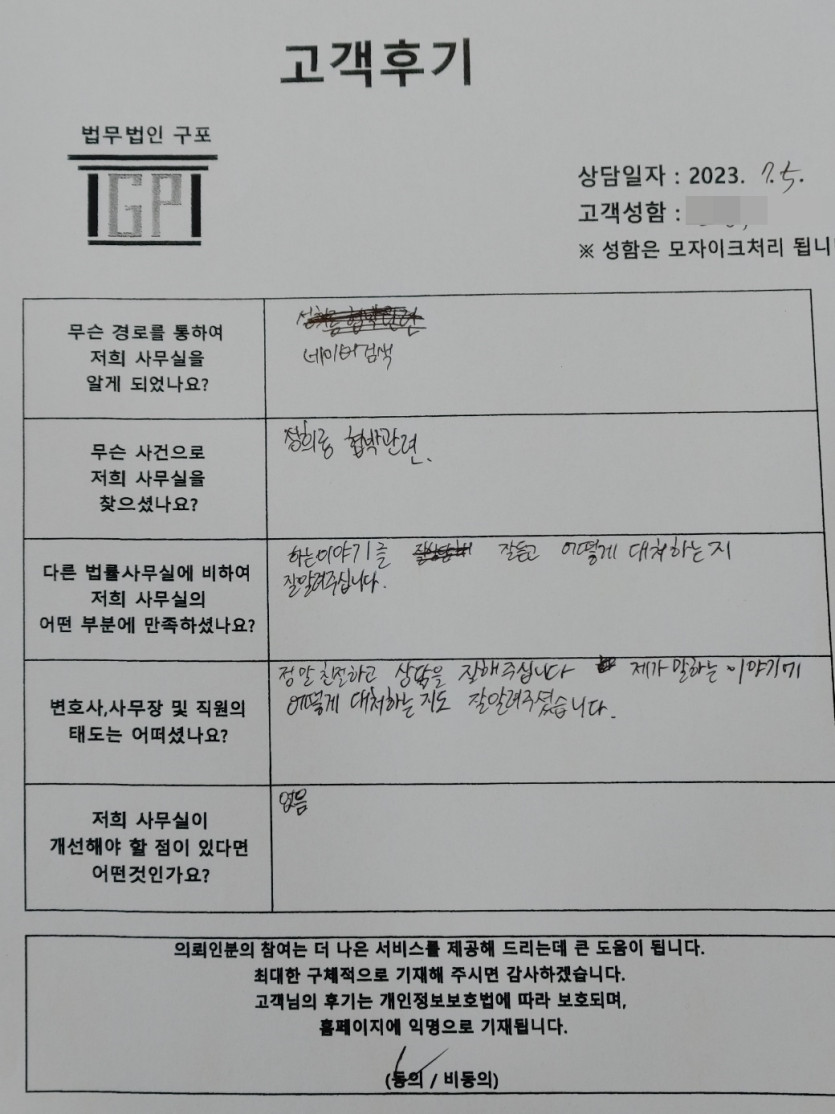 고객후기
법무법인 구포
GP
상담일자 : 2023. 7. 5.
고객성함 :
※ 성함은 모자이크처리 됩니
무슨 경로를 통하여
저희 사무실을
알게 되었나요?
네이버검색
무슨 사건으로
저희 사무실을
찾으셨나요?
협박관련.
다른 법률사무실에 비하여
저희 사무실의
어떤 부분에 만족하셨나요?
하는이야기를 잘듣고 어떻게 대처하는지
잘알려주십니다.
변호사,사무장 및 직원의
태도는 어떠셨나요?
정말친절하고 상담을 잘해주십니다 제가 말하는 이야기에
어떻게 대처하는지도 잘알려주셨습니다.
저희 사무실이
개선해야 할 점이 있다면
어떤것인가요?
없음
의뢰인분의 참여는 더 나은 서비스를 제공해 드리는데 큰 도움이 됩니다.
최대한 구체적으로 기재해 주시면 감사하겠습니다.
고객님의 후기는 개인정보보호법에 따라 보호되며,
홈페이지에 익명으로 기재됩니다.
(동의 / 비동의)